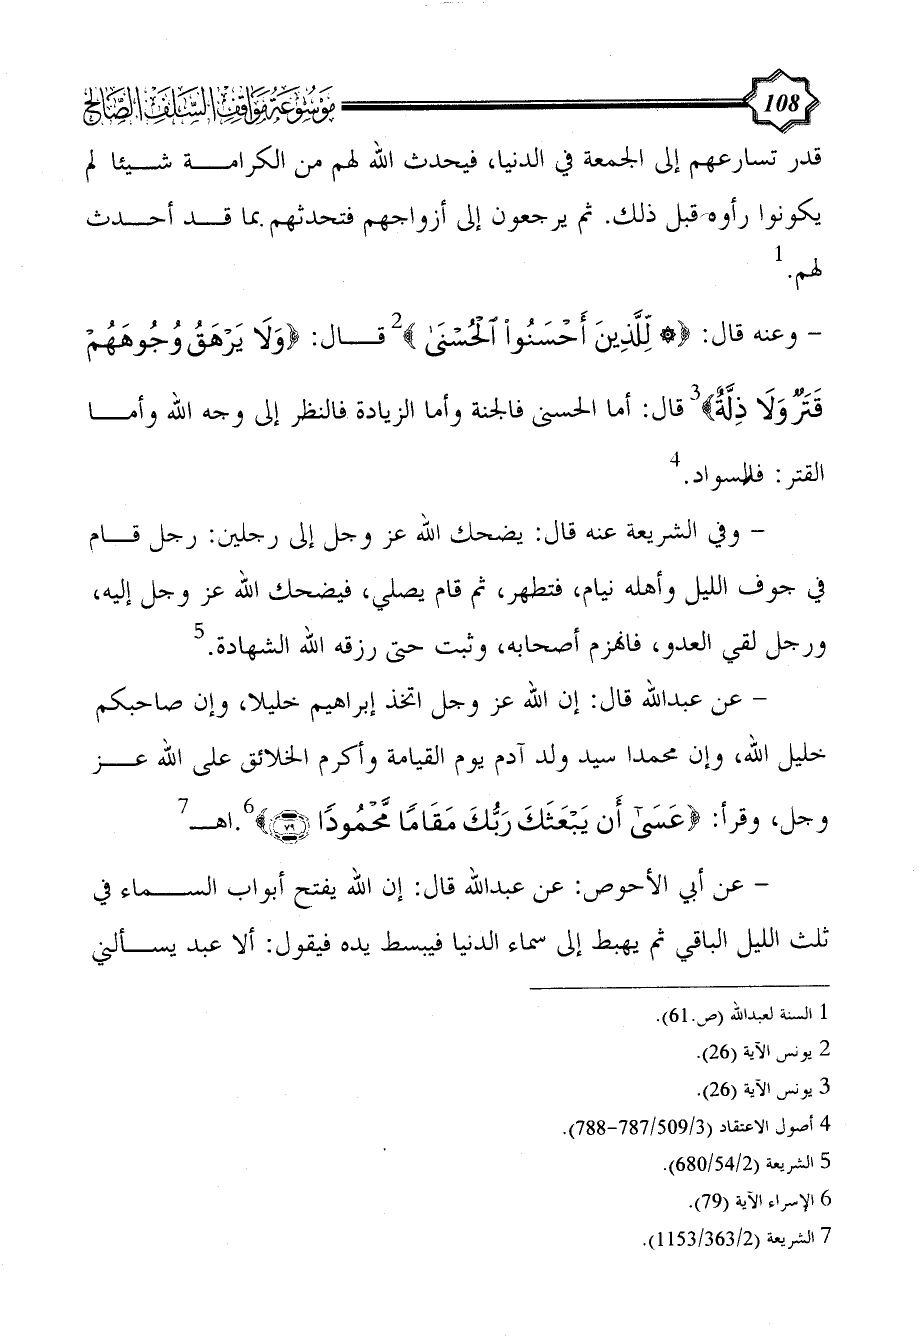 108 موسوعة مواقف السلف الصالح
قدر تسارعهم إلى الجمعة في الدنيا، فيحدث الله لهم من الكرامة شيئا لم
يكونوا رأوه قبل ذلك. ثم يرجعون إلى أزواجهم فتحدثهم بما قد أحدث
لهم.1
- وعنه قال: ﴿۞ لِّلَّذِينَ أَحْسَنُوا۟ ٱلْحُسْنَىٰ﴾2 قال: ﴿وَلَا يَرْهَقُ وُجُوهَهُمْ
قَتَرٌ وَلَا ذِلَّةٌ﴾3 قال: أما الحسنى فالجنة وأما الزيادة فالنظر إلى وجه الله وأما
القتر: فالسواد.4
- وفي الشريعة عنه قال: يضحك الله عز وجل إلى رجلين: رجل قام
في جوف الليل وأهله نيام، فتطهر، ثم قام يصلي، فيضحك الله عز وجل إليه،
ورجل لقي العدو، فانهزم أصحابه، وثبت حتى رزقه الله الشهادة.5
- عن عبدالله قال: إن الله عز وجل اتخذ إبراهيم خليلا، وإن صاحبكم
خليل الله، وإن محمدا سيد ولد آدم يوم القيامة وأكرم الخلائق على الله عز
وجل، وقرأ: ﴿عَسَىٰٓ أَن يَبْعَثَكَ رَبُّكَ مَقَامًا مَّحْمُودًا ٧٩﴾6.اهـ7
- عن أبي الأحوص: عن عبدالله قال: إن الله يفتح أبواب السماء في
ثلث الليل الباقي ثم يهبط إلى سماء الدنيا فيبسط يده فيقول: ألا عبد يسألني
1 السنة لعبدالله (ص.61).
2 يونس الآية (26).
3 يونس الآية (26).
4 أصول الاعتقاد (3/509/787-788).
5 الشريعة (2/54/680).
6 الإسراء الآية (79).
7 الشريعة (2/363/1153).